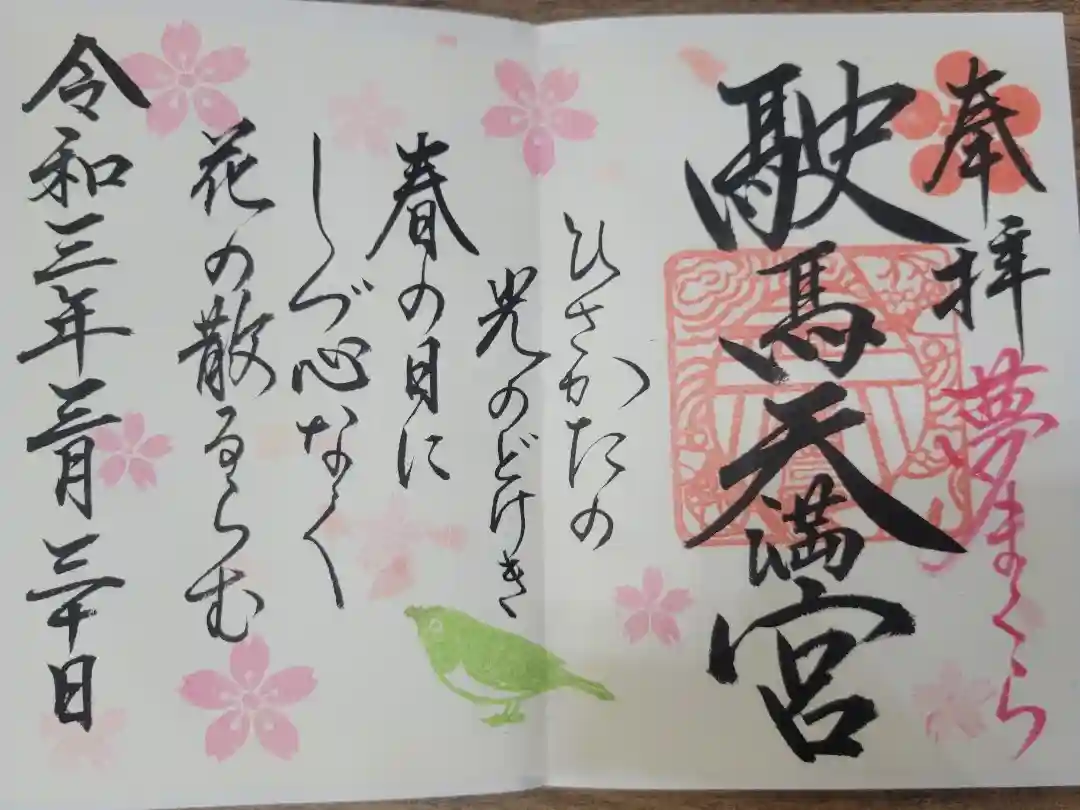 奉拝
夢まくら
駛馬天満宮
ひさかたの
光のどけき
春の日に
しづ心なく
花の散るらむ
令和三年三月三十日